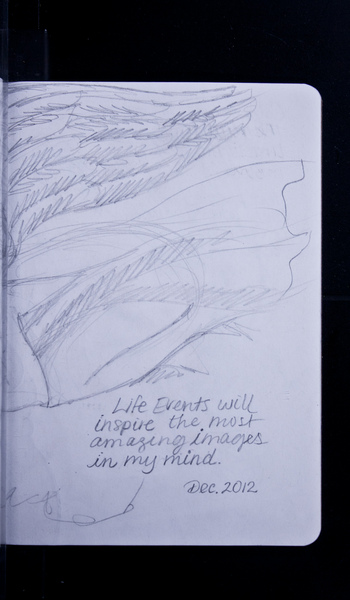 Life Events will
inspire the most
amazing images
in my mind.
Dec. 2012